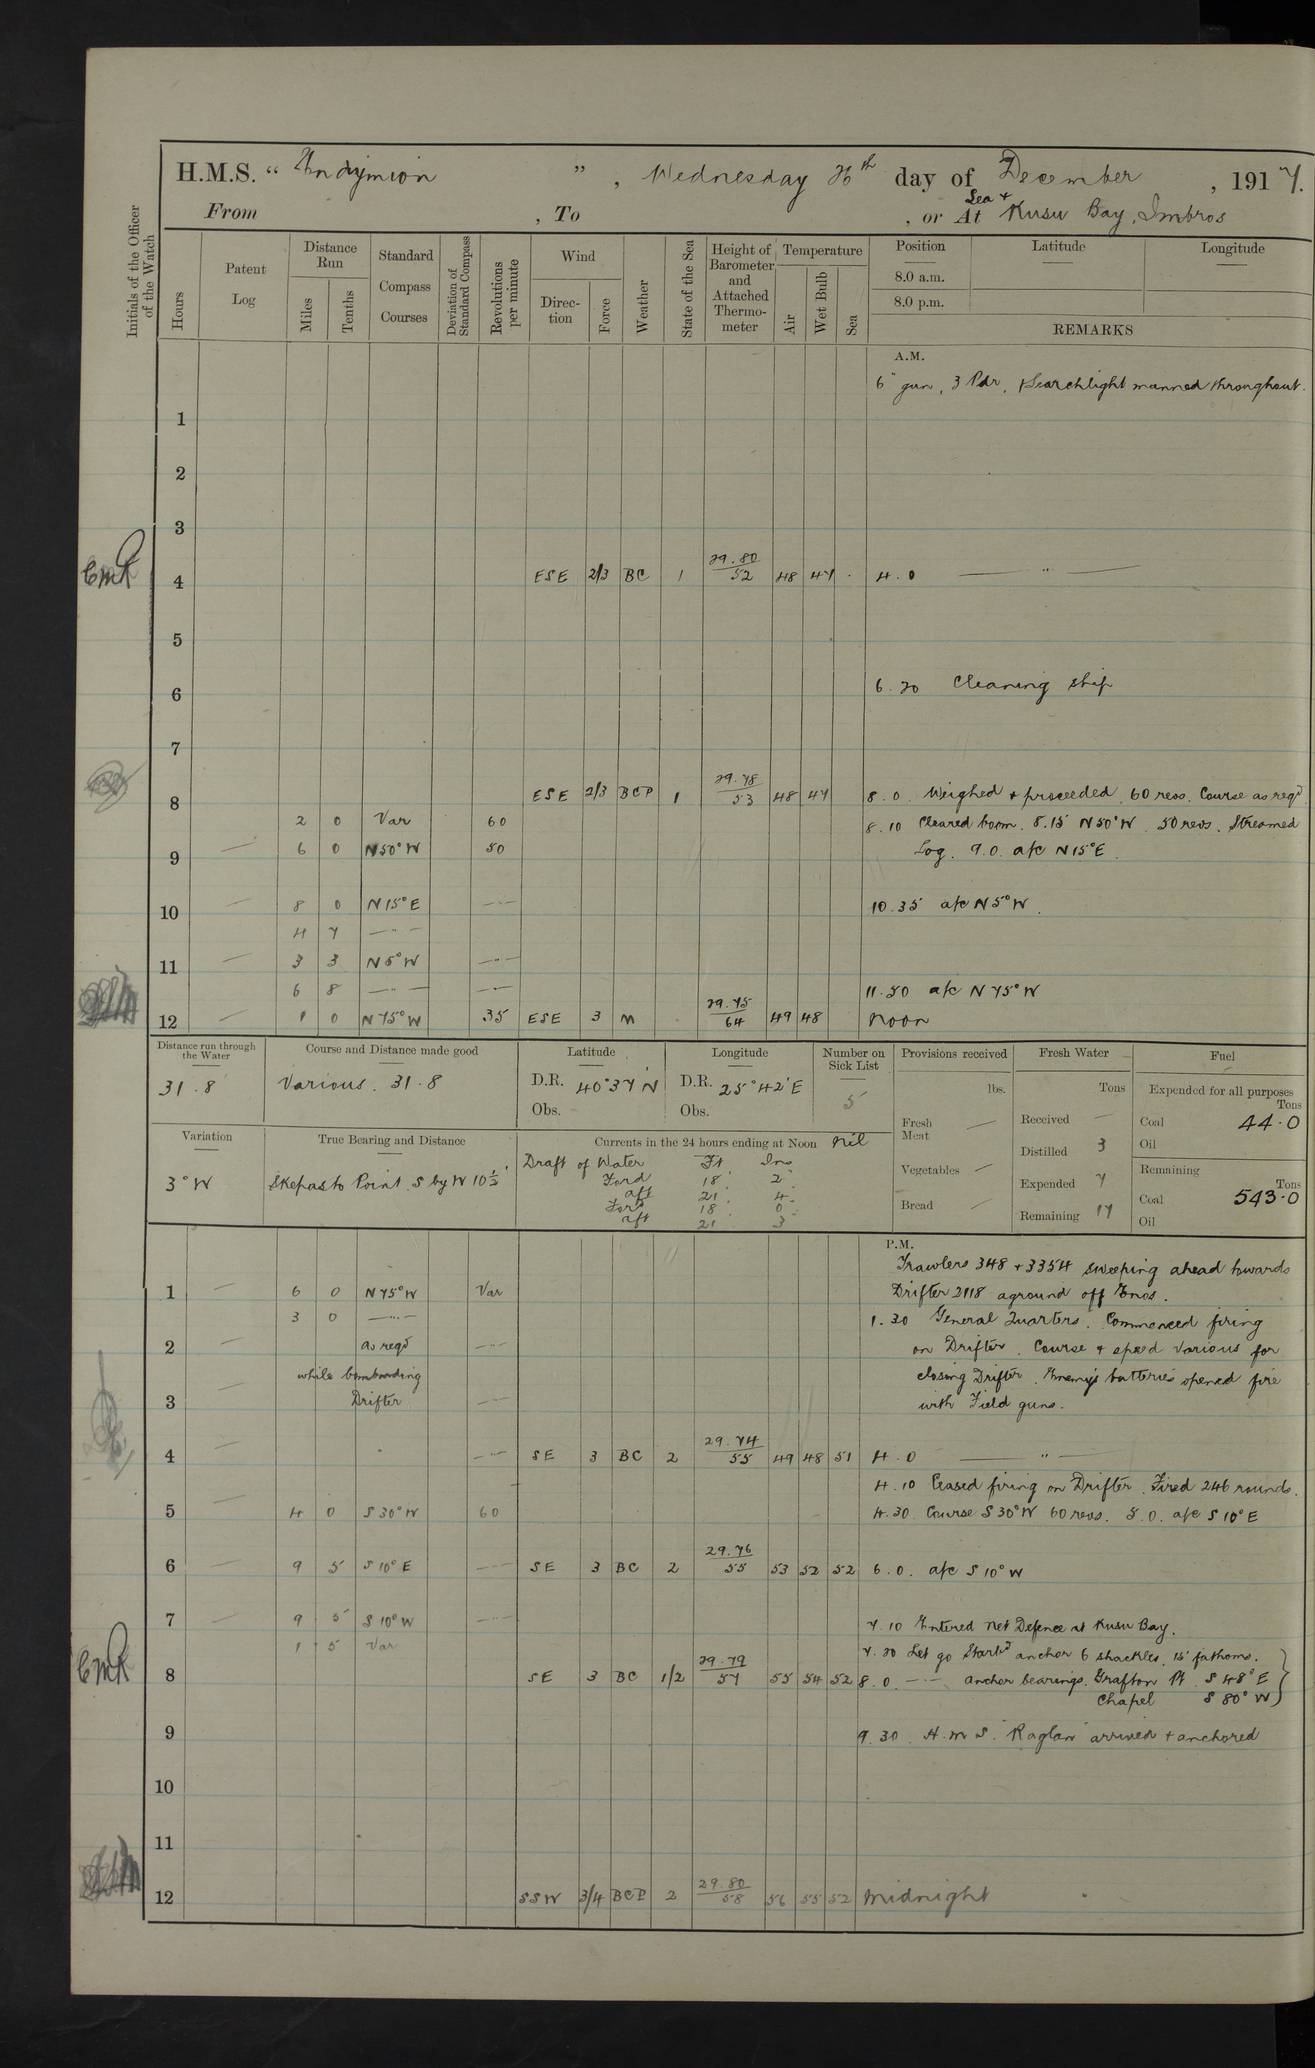 H.M.S. “ Endymion ” , Wednesday 26th day of December , 1917.
From , To , or At Sea + Kusu Bay, Imbros
Initials of the Officer of the Watch
Hours
Patent Log
Distance Run
Miles
Tenths
Standard Compass Courses
Deviation of Standard Compass
Revolutions per minute
Wind
Direc- tion
Force
Weather
State of the Sea
Height of Barometer and Attached Thermo- meter
Temperature
Air
Wet Bulb
Sea
Position Latitude Longitude
8.0 a.m.
8.0 p.m.
REMARKS
A.M.
6" gun, 3 Pdr, + Searchlight manned throughout.
1
2
3
4 ESE 2/3 BC 1 29.80 52 48 47 . 4.0 — " —
5
6 6.20 Cleaning ship
7
8 ESE 2/3 BCP 1 29.78 53 48 47 8.0 Weighed + proceeded. 60 revs. Course as reqd
2 0 Var 60 8.10 Cleared boom. 8.15 N50°W. 50 revs. Streamed
9 — 6 0 N50°W 50 Log. 9.0. a/c N15°E.
10 — 8 0 N15°E — " — 10.35 a/c N5°W.
4 7 — " —
11 — 3 3 N5°W — " —
6 8 — " — — " — 11.50 a/c N75°W
12 — 1 0 N75°W 35 ESE 3 M 29.75 64 49 48 Noon
Distance run through the Water
31.8
Course and Distance made good
Various. 31.8
Latitude
D.R. 40°37'N
Obs.
Longitude
D.R. 25°42'E
Obs.
Number on Sick List
5
Provisions received
lbs.
Fresh Meat —
Vegetables —
Bread —
Fresh Water
Tons
Received —
Distilled 3
Expended 7
Remaining 17
Fuel
Expended for all purposes
Tons
Coal 44.0
Oil
Remaining
Tons
Coal 543.0
Oil
Variation
3°W
True Bearing and Distance
Skepasto Point. S by W 10½'
Currents in the 24 hours ending at Noon nil
Draft of Water Ft. Ins
Ford 18. 2.
aft 21. 4.
Ford 18. 0.
aft 21. 3
P.M.
Trawlers 348 + 3354 sweeping ahead towards
1 — 6 0 N75°W Var Drifter 2118 aground off Enos.
3 0 — " — 1.30 General Quarters. Commenced firing
2 — as reqd — " — on Drifter. Course + speed various for
while bombarding closing Drifter. Enemy's batteries opened fire
3 — Drifter — " — with Field guns.
4 — — " — SE 3 BC 2 29.74 55 49 48 51 4.0 — " —
4.10 Ceased firing on Drifter. Fired 246 rounds.
5 4 0 S30°W 60 4.30 Course S30°W 60 revs. 5.0. a/c S10°E
6 — 9 5 S10°E — " — SE 3 BC 2 29.76 55 53 52 52 6.0. a/c S10°W
7 — 9 5 S10°W — " — 7.10 Entered Net Defence at Kusu Bay.
1 5 Var 7.20 Let go Starbd anchor 6 shackles. 15 fathoms.
8 SE 3 BC 1/2 29.79 57 55 54 52 8.0. — " — anchor bearings. Grafton Pt. S 48°E
Chapel S 80°W
9 9.30. H.M.S. Raglan arrived + anchored
10
11
12 SSW 3/4 BCP 2 29.80 58 56 55 52 Midnight